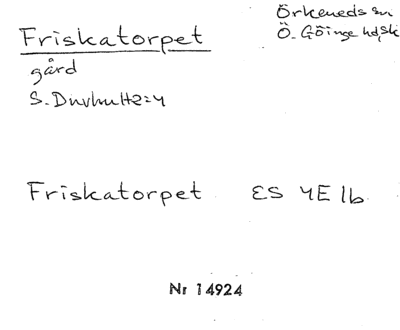 Friskatorpet
Örkeneds sn
Ö. Göinge hd, Sk
gård
S. Duvhult 2:4
Friskatorpet ES 4E 1b
Nr 14924